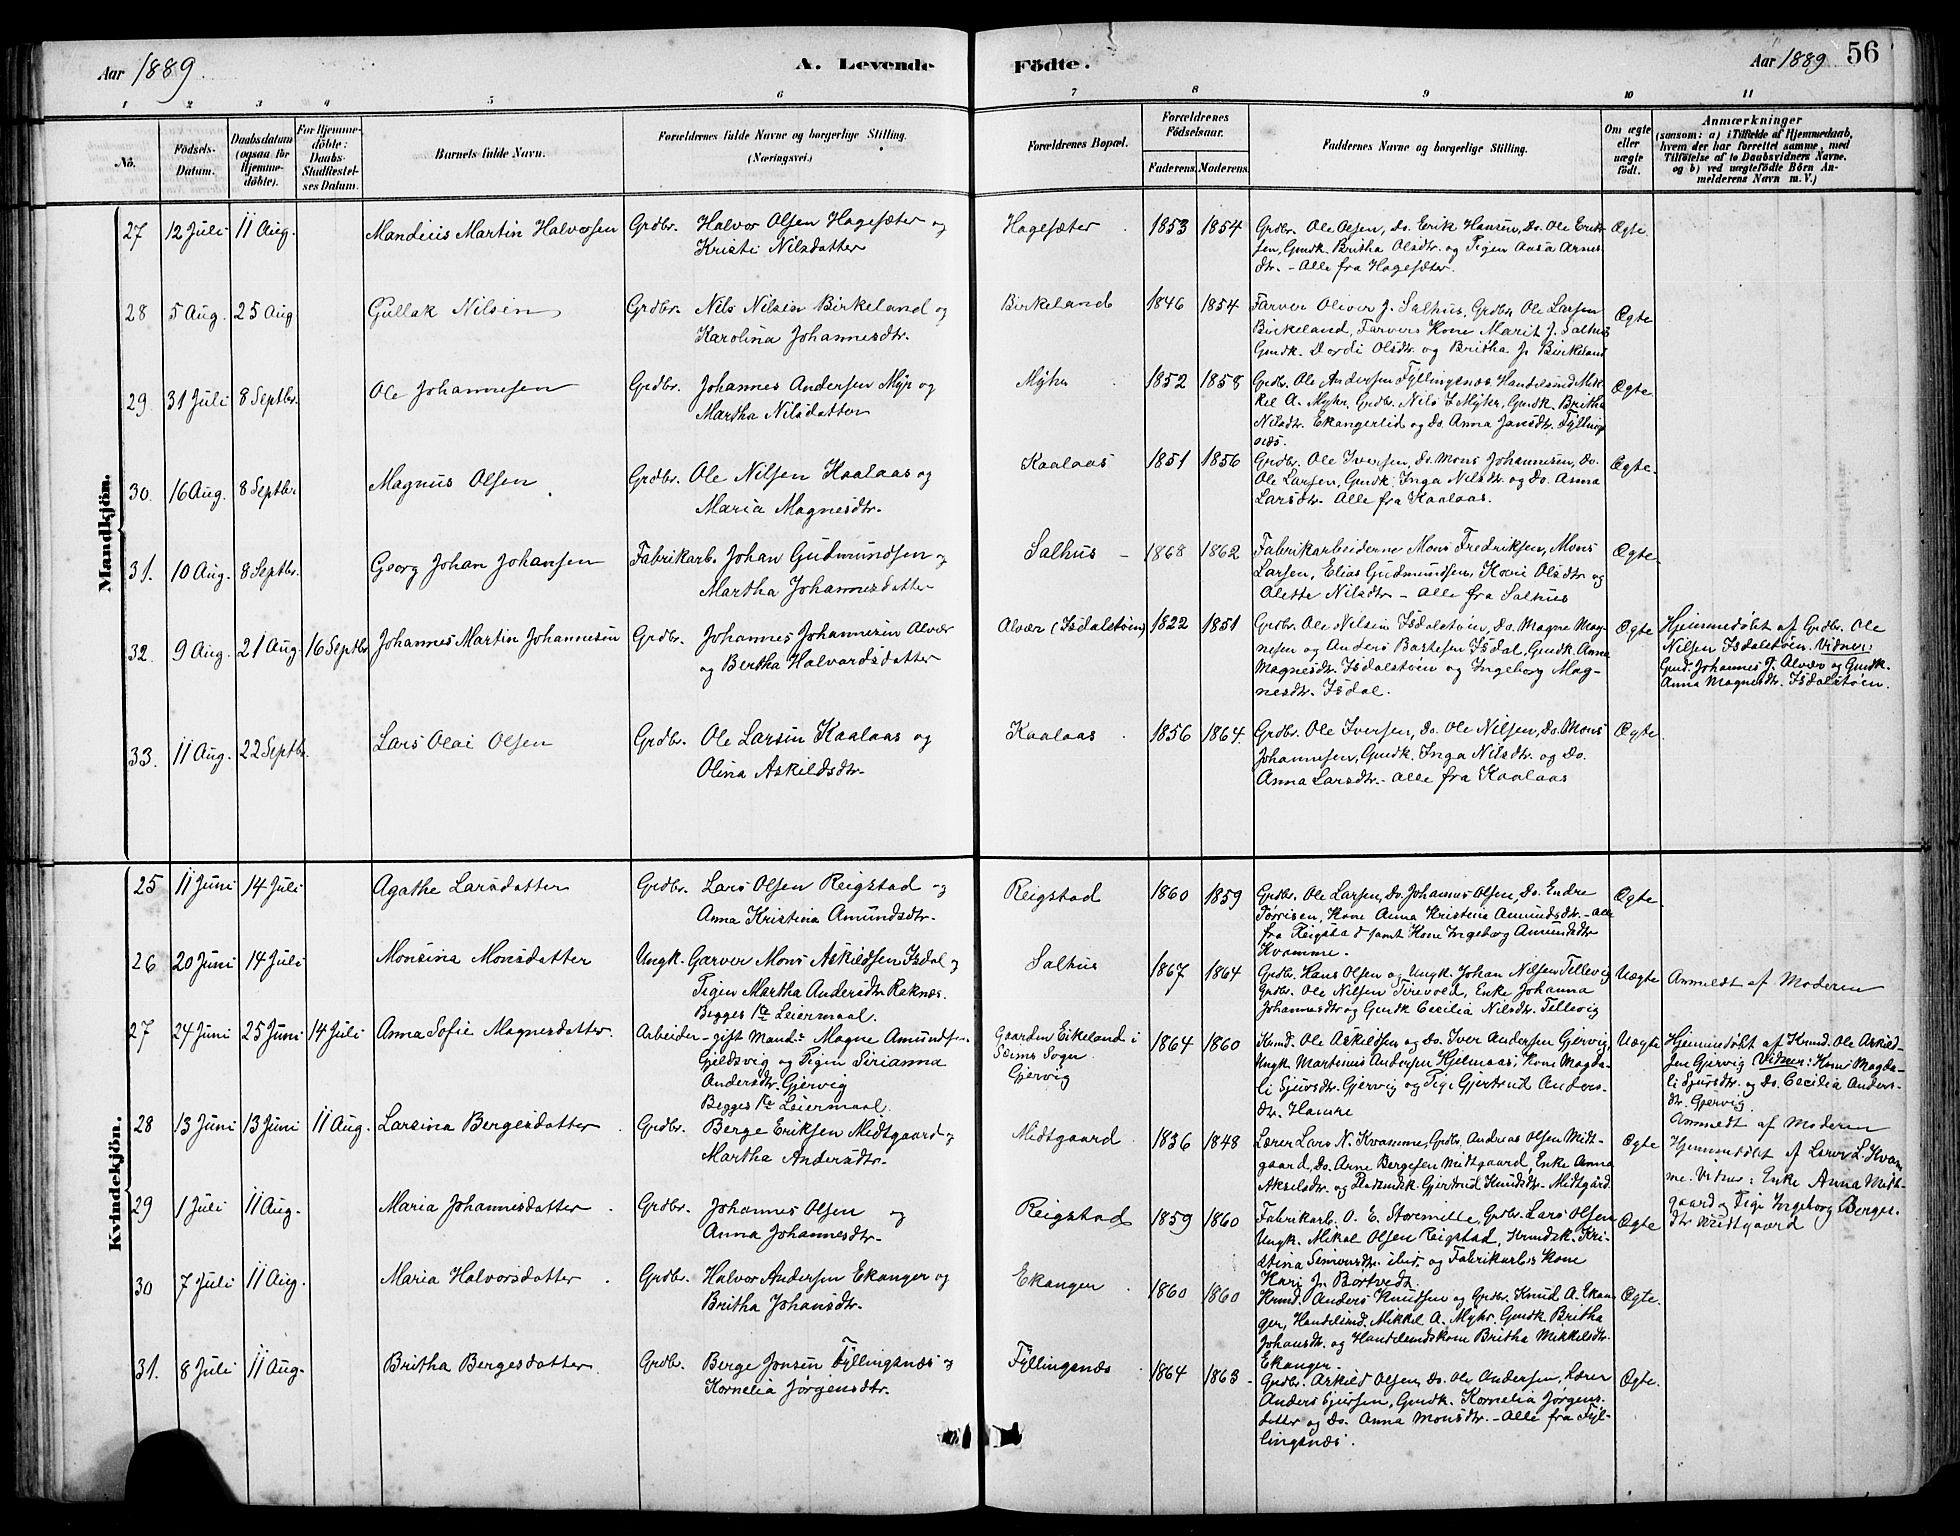 Aar 1889.
A. Levende
Födte.
Aar 1889
56
1 2 3 4 5 6
7 8 9 10 11
No.
Födsels-
Datum.
Daabsdatum
(ogsaa for
Hjemme-
döbte).
For Hjemme-
döbte:
Daabs-
Stadfæstel-
ses Datum.
Barnets fulde Navn.
Forældrenes fulde Navne og borgerlige Stilling.
(Næringsvei.)
Forældrenes Bopæl.
Forældrenes
Födselsaar.
Faderens.
Moderens.
Faddernes Navne og borgerlige Stilling.
Om ægte
eller
uægte
födt.
Anmærkninger
(saasom: a) i Tilfælde af Hjemmedaab,
hvem der har forrettet samme, med
Tilföielse af to Daabsvidners Navne.
og b) ved uægtefödte Börn An-
melderens Navn m. V.)
Mandkjön.
27 12 Juli 11 Aug. Mandius Martin Halvorsen Grdbr. Halvor Olsen Hagesæter og
Kristi Nilsdatter
Hagesæter 1853 1854 Grdbr. Ole Olsen, Do. Erik Hansen, Do. Ole Erik-
sen, Gmdk. Britha Olsdtr. og Pigen Aasa Arnes-
dtr. - Alle fra Hagesæter.
Ægte.
28 5 Aug. 25 Aug Gullak Nilsen Grdbr. Nils Nilsen Birkeland og
Karolina Johannesdtr.
Birkeland 1846 1854 Farver Oliver J. Salhus, Grdbr. Ole Larsen
Birkeland, Farvers Kone Marit J. Salhus
Gmdk. Dordi Olsdtr. og Britha J. Birkeland
Ægte
29 31 Juli 8 Septbr. Ole Johannesen Grdbr. Johannes Andersen Myr og
Martha Nilsdatter
Myhr 1852 1858 Grdbr. Ole Andersen Fyllingsnæs. Handelsmd Mik-
kel A. Myhr, Grdbr. Nils J Myhr, Gmdk. Britha
Nilsdtr. Ekangerlid og Do. Anna Jansdtr. Fyllings-
næs.
Ægte
30. 16 Aug. 8 Septbr. Magnus Olsen Grdbr. Ole Nilsen Kaalaas og
Maria Magnesdtr.
Kaalaas 1851 1856 Grdbr. Ole Iversen, Do. Mons Johannesen, Do.
Ole Larsen, Gmdk. Inga Nilsdtr. og Do. Anna
Larsdtr. Alle fra Kaalaas.
Ægte.
31. 10 Aug. 8 Septbr. Georg Johan Johansen Fabrikarb. Johan Gudmundsen og
Martha Johannesdatter
Salhus 1868 1862 Fabrikarbeiderne Mons Fredriksen, Mons
Larsen, Elias Gudmundsen, Kone Olsdtr og
Alette Nilsdtr - Alle fra Salhus
Ægte
32. 9 Aug. 21 Aug 16 Septbr Johannes Martin Johannesen Grdbr. Johannes Johannesen Alvær
og Bertha Halvardsdatter
Alvær (Isdalstøen) 1822 1851 Grdbr. Ole Nilsen Isdalstøen, Do. Magne Mag-
nesen og Anders Bartesen Isdal, Gmdk. Anna
Magnesdtr. Isdalstøen og Ingeborg Mag-
nesdtr. Isdal.
Ægte
Hjemmedøbt af Grdbr. Ole
Nilsen Isdalstøen. Vidner:
Gmd. Johannes J. Alvær og Gmdk.
Anna Magnesdtr. Isdalstøen.
33. 11 Aug. 22 Septbr. Lars Olai Olsen Grdbr. Ole Larsen Kaalaas og
Olina Askildsdtr.
Kaalaas 1856 1864. Grdbr. Ole Iversen, Do. Ole Nilsen, Do. Mons
Johannesen, Gmdk. Inga Nilsdtr. og Do.
Anna Larsdtr. - Alle fra Kaalaas
Ægte.
Kvindekjön.
25 11 Juni 14 Juli Agathe Larsdatter Grdbr. Lars Olsen Reigstad og
Anna Kristina Amundsdtr.
Reigstad 1860 1859 Grdbr. Ole Larsen, Do. Johannes Olsen, Do. Endre
Tørrisen, Kone Anna Kristina Amundsdtr. - alle
fra Reigstad samt Kone Ingeborg Amundsdtr
Kvamme.
Ægte.
26 20 Juni 14 Juli Monsina Monsdatter Ungk. Garver Mons Askildsen Isdal og
Pigen Martha Andersdtr Raknæs.
Begges 1ste Leiermaal.
Salhus 1867 1864 Grdbr. Hans Olsen og Ungk. Johan Nilsen Tellevig
Grdbr. Ole Nilsen Tirevold, Enke Johanna
Johannesdtr og Gmdk Cecilia Nilsdtr. Tellevig
Uægte Anmeldt af Moderen
27 24 Juni 25 Juni 14 Juli Anna Sofie Magnesdatter. Arbeider - gift Mand - Magne Amundsen
Gjeldsvig og Pigen Sirianna
Andersdtr. Gjervig
Begges 1ste Leiermaal.
Gaarden Eikeland i
Seims Sogn
Gjervig
1864 1860 Kmd. Ole Askildsen og Do. Iver Andersen Gjervig,
Ungk. Martinus Andersen Hjelmaas, Kone Magda-
li Sjursdtr. Gjervig og Pige Gjertrud Anders-
dtr. Hamre
Uægte
Hjemmedøbt af Kmd. Ole Askild-
sen Gjervig Vidner: Kone Magda-
li Sjursdtr. og Do. Cecilia Anders-
dtr. Gjervig.
Anmeldt af Moderen
28 13 Juni 13 Juni 11 Aug. Larsina Bergesdatter Grdbr. Berge Eriksen Midtgaard og
Martha Andersdtr.
Midtgaard 1836 1848 Lærer Lars N. Kvamme, Grdbr. Andreas Olsen Midt-
gaard, Do. Arne Bergesen Midtgaard, Enke Anna
Akselsdtr. og Gjertrud Knudsdtr. Midtgård.
Ægte
Hjemmedøbt af Lærer L. Kvam
me. Vidner: Enke Anna Midt-
gaard og Pige Ingeborg Berges-
dtr Midtgaard
29 1 Juli 11 Aug. Maria Johannesdatter Grdbr. Johannes Olsen og
Anna Johannesdtr.
Reigstad 1859 1860 Fabrikarb. O. E. Storemitte, Grdbr. Lars Olsen
Ungk. Mikal Olsen Reigstad, Kmdsk. Kri-
stina Simonsdtr. ibid. og Fabrikarbs Kone
Kari J. Börtvedt.
Ægte
30 7 Juli 11 Aug. Maria Halvorsdatter Grdbr. Halvor Andersen Ekanger og
Britha Johansdtr.
Ekanger 1860 1860 Kmd. Anders Knudsen og Grdbr. Knud A. Ekan
ger, Handelsmd. Mikkel A. Myhr. Gmdk Britha
Johansdtr. og Handelsmdskone Britha Mikkelsdtr.
Ekanger.
Ægte.
31. 8 Juli 11 Aug. Britha Bergesdatter Grdbr. Berge Jonsen Fyllingsnæs og
Kornelia Jørgensdtr.
Fyllingsnæs 1864 1863 Grdbr. Askild Olsen, Do. Ole Andersen, Lærer
Anders Sjursen, Gmdk. Kornelia Jørgens-
datter og Do. Anna Monsdtr. - Alle fra Fyl-
lingsnæs.
Ægte.